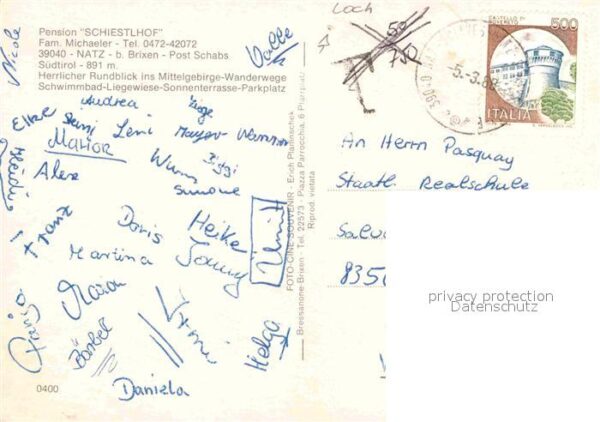 Pension "SCHIESTLHOF"
Fam. Michaeler - Tel. 0472-42072
39040 - NATZ - b. Brixen - Post Schabs
Südtirol - 891 m.
Herrlicher Rundblick ins Mittelgebirge-Wanderwege
Schwimmbad-Liegewiese-Sonnenterrasse-Parkplatz
Nicole
Andrea
Elke
Leni
Marion
Alex
Simone
Franz
Doris
Heike
Martina
Bärbel
Irmi
Helga
Daniela
0400
FOTO-CINE SOUVENIR - Erich Planinschek
Bressanone-Brixen - Tel. 22573 - Piazza Parrocchia, 6 Pfarrplatz
Riprod. vietata
Loch
50
750
5.-3.88
CASTELLO DI
ROVERETO
500
ITALIA
An Herrn Pasquay
Staatl. Realschule
8350
privacy protection
Datenschutz